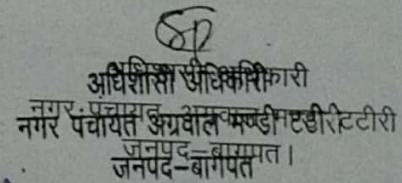 अधिशासी अधिकारी
नगर पंचायत अग्रवाल मण्डी टटीरी
जनपद-बागपत।